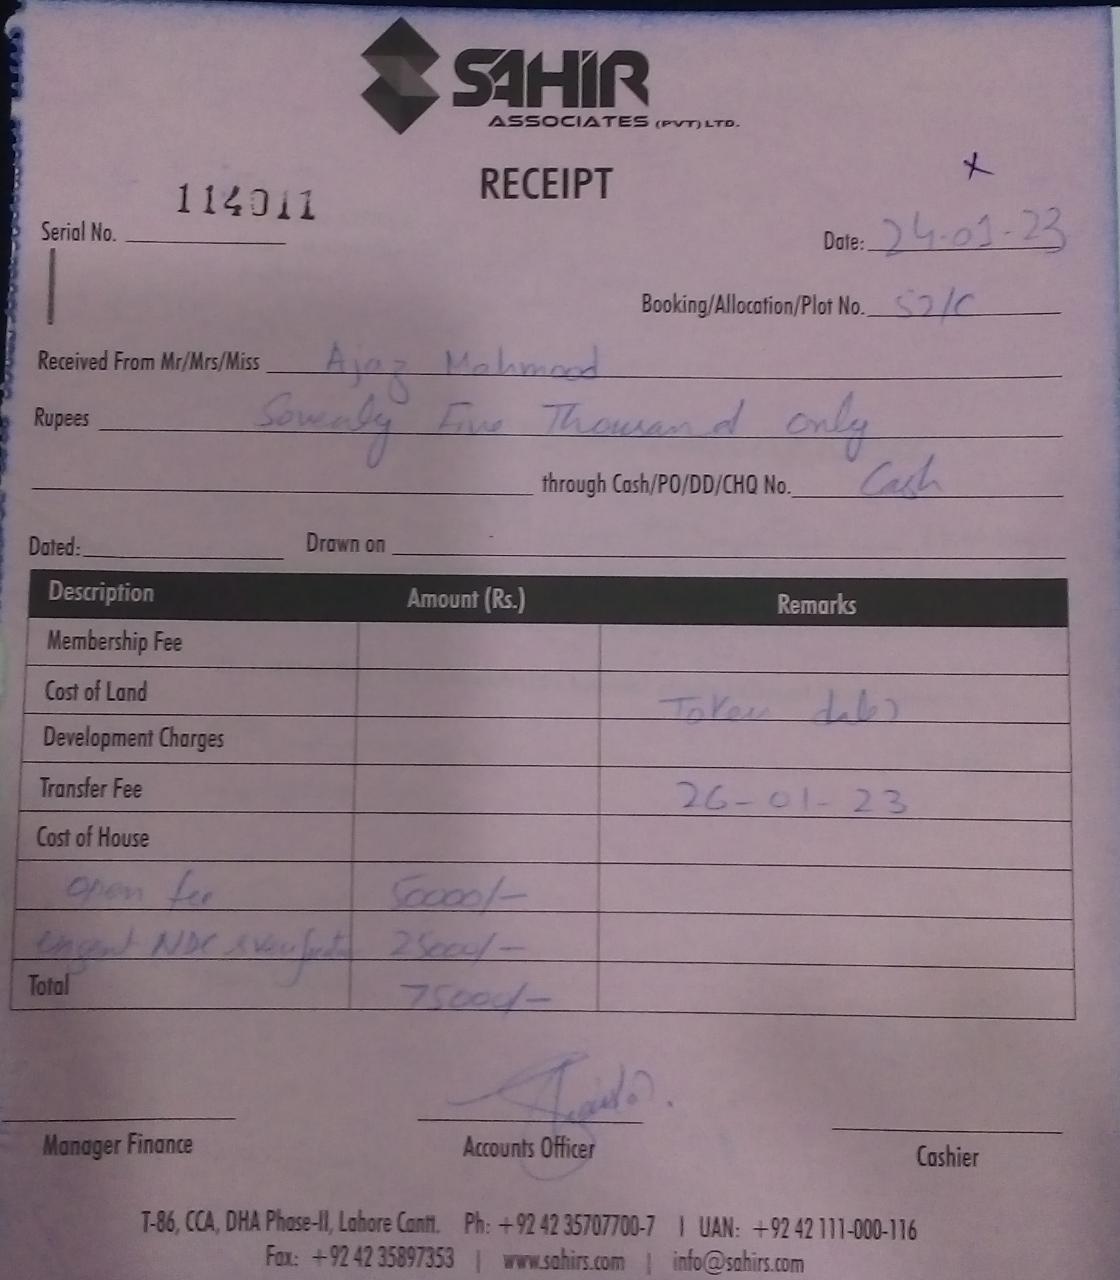 SAHIR
ASSOCIATES (PVT) LTD.
RECEIPT
114011
Serial No.
Date: 24-01-23
Booking/Allocation/Plot No. 52/C
Received From Mr/Mrs/Miss Ajaz Mahmood
Rupees Sevenly Five Thousand only
through Cash/PO/DD/CHQ No. Cash
Dated: Drawn on
Description Amount (Rs.) Remarks
Membership Fee
Cost of Land
Token date
Development Charges
Transfer Fee 26-01-23
Cost of House
open fee 50000/-
urgent NDC 25000/-
Total 75000/-
Manager Finance Accounts Officer Cashier
T-86, CCA, DHA Phase-II, Lahore Cantt. Ph: +92 42 35707700-7 | UAN: +92 42 111-000-116
Fax: +92 42 35897353 | www.sahirs.com | info@sahirs.com